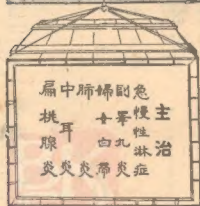 主治
急慢性淋症
副睾丸炎
婦女白帶
肺炎
中耳炎
扁桃腺炎